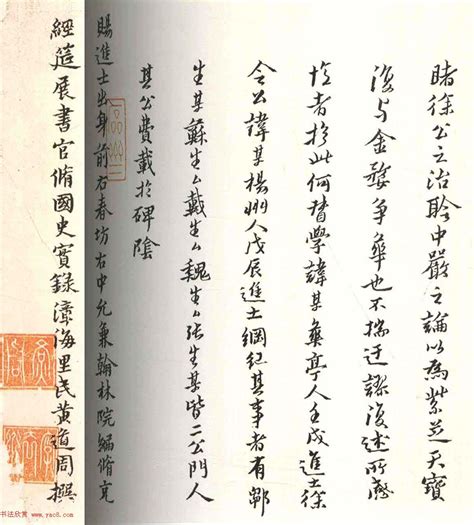 睹徐公之治聆中嚴之論以為紫芝天寶
復与金婺爭華也不揣迂謬復述所
者於此何督學諱某華亭人壬戌進士徐
令公諱某楊州人戊辰進士綱紀其事者有鄣
生某蘇生厶戴生厶魏生厶張生某皆二公門人
其公費載於碑陰
賜進士出身前右春坊右中允兼翰林院編脩充
經筵展書官脩國史實錄漳海里民黃道周撰
书法欣赏 www.yac8.com